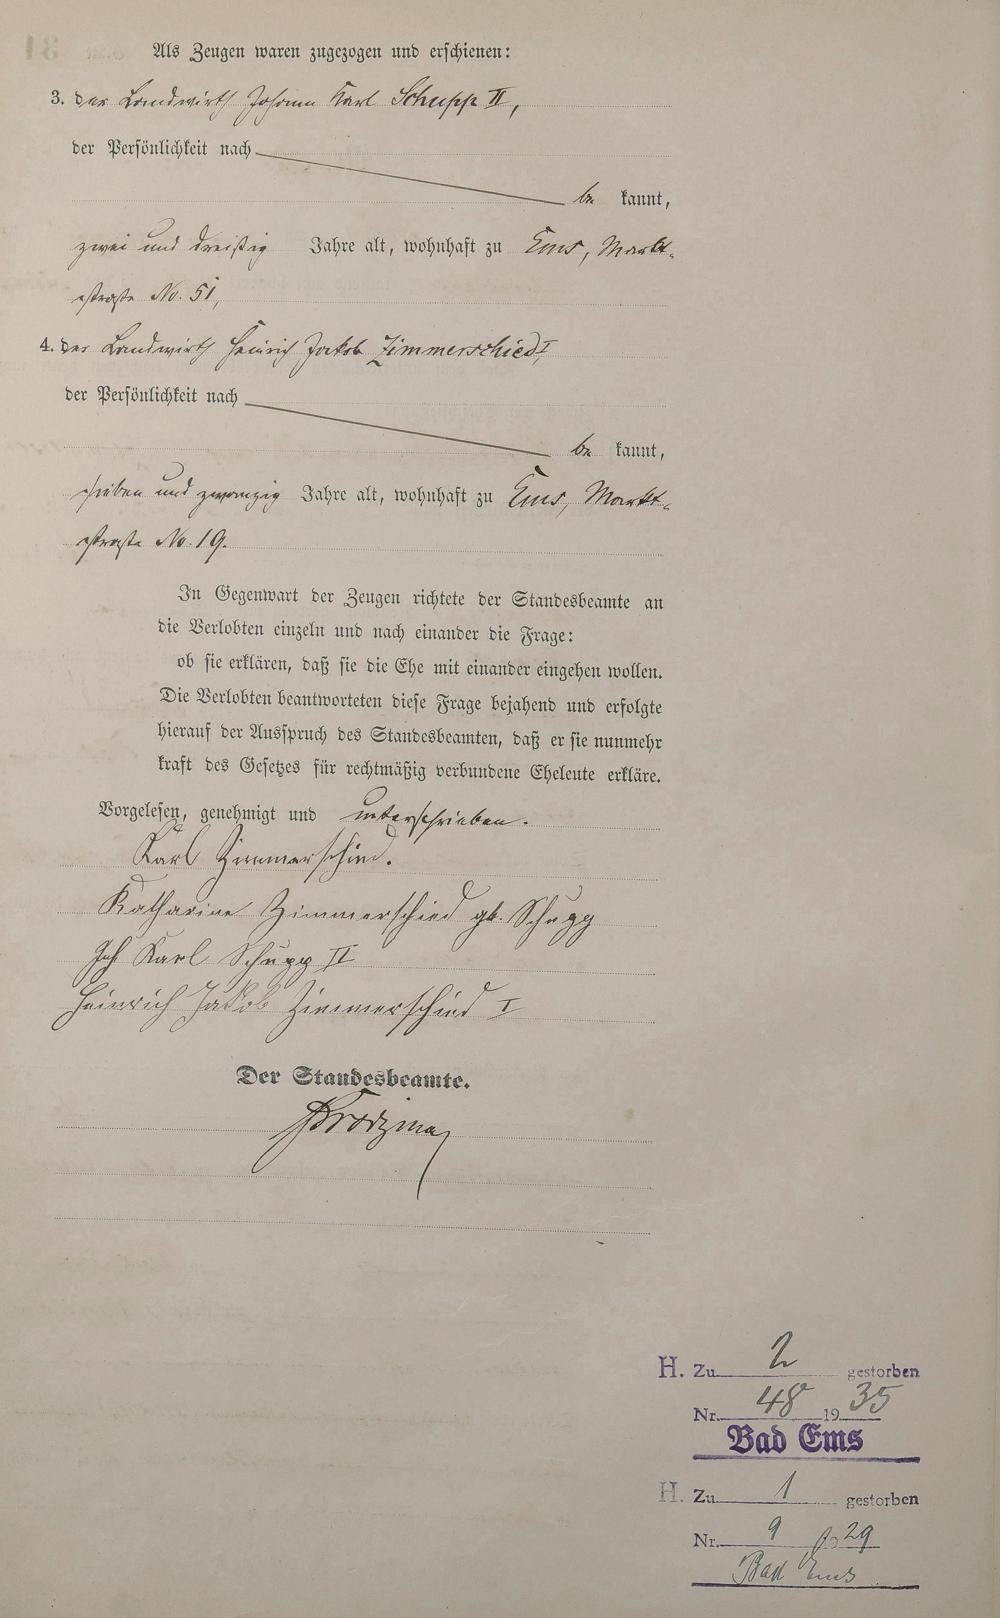 Als Zeugen waren zugezogen und erschienen:
3. der Landwirth Johann Karl Schupp II,
der Persönlichkeit nach
be kannt,
zwei und dreißig Jahre alt, wohnhaft zu Ems, Markt-
straße No. 51,
4. der Landwirth Heinrich Jakob Zimmerschied I,
der Persönlichkeit nach
be kannt,
sieben und zwanzig Jahre alt, wohnhaft zu Ems, Markt-
straße No. 19.
In Gegenwart der Zeugen richtete der Standesbeamte an
die Verlobten einzeln und nach einander die Frage:
ob sie erklären, daß sie die Ehe mit einander eingehen wollen.
Die Verlobten beantworteten diese Frage bejahend und erfolgte
hierauf der Ausspruch des Standesbeamten, daß er sie nunmehr
kraft des Gesetzes für rechtmäßig verbundene Eheleute erkläre.
Vorgelesen, genehmigt und unterschrieben.
Karl Zimmerschied.
Katharine Zimmerschied gb. Schupp
Joh Karl Schupp II
Heinrich Jakob Zimmerschied I
Der Standesbeamte.
H. Zu 2 gestorben
Nr. 48 1935
Bad Ems
H. Zu 1 gestorben
Nr. 9 29
Bad Ems